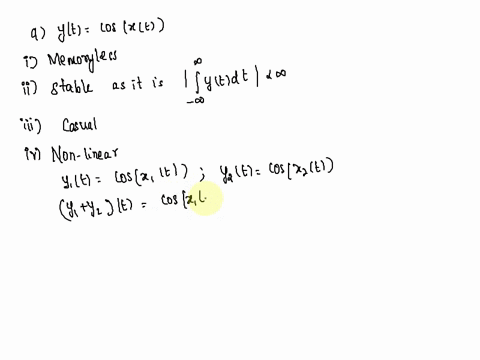 a) y(t) = cos(x(t))
i) Memoryless
ii) stable as it is |∫_{-∞}^{∞} y(t)dt| < ∞
iii) Casual
iv) Non-linear
y₁(t) = cos(x₁(t)) ; y₂(t) = cos(x₂(t))
(y₁+y₂)(t) = cos(x₁(